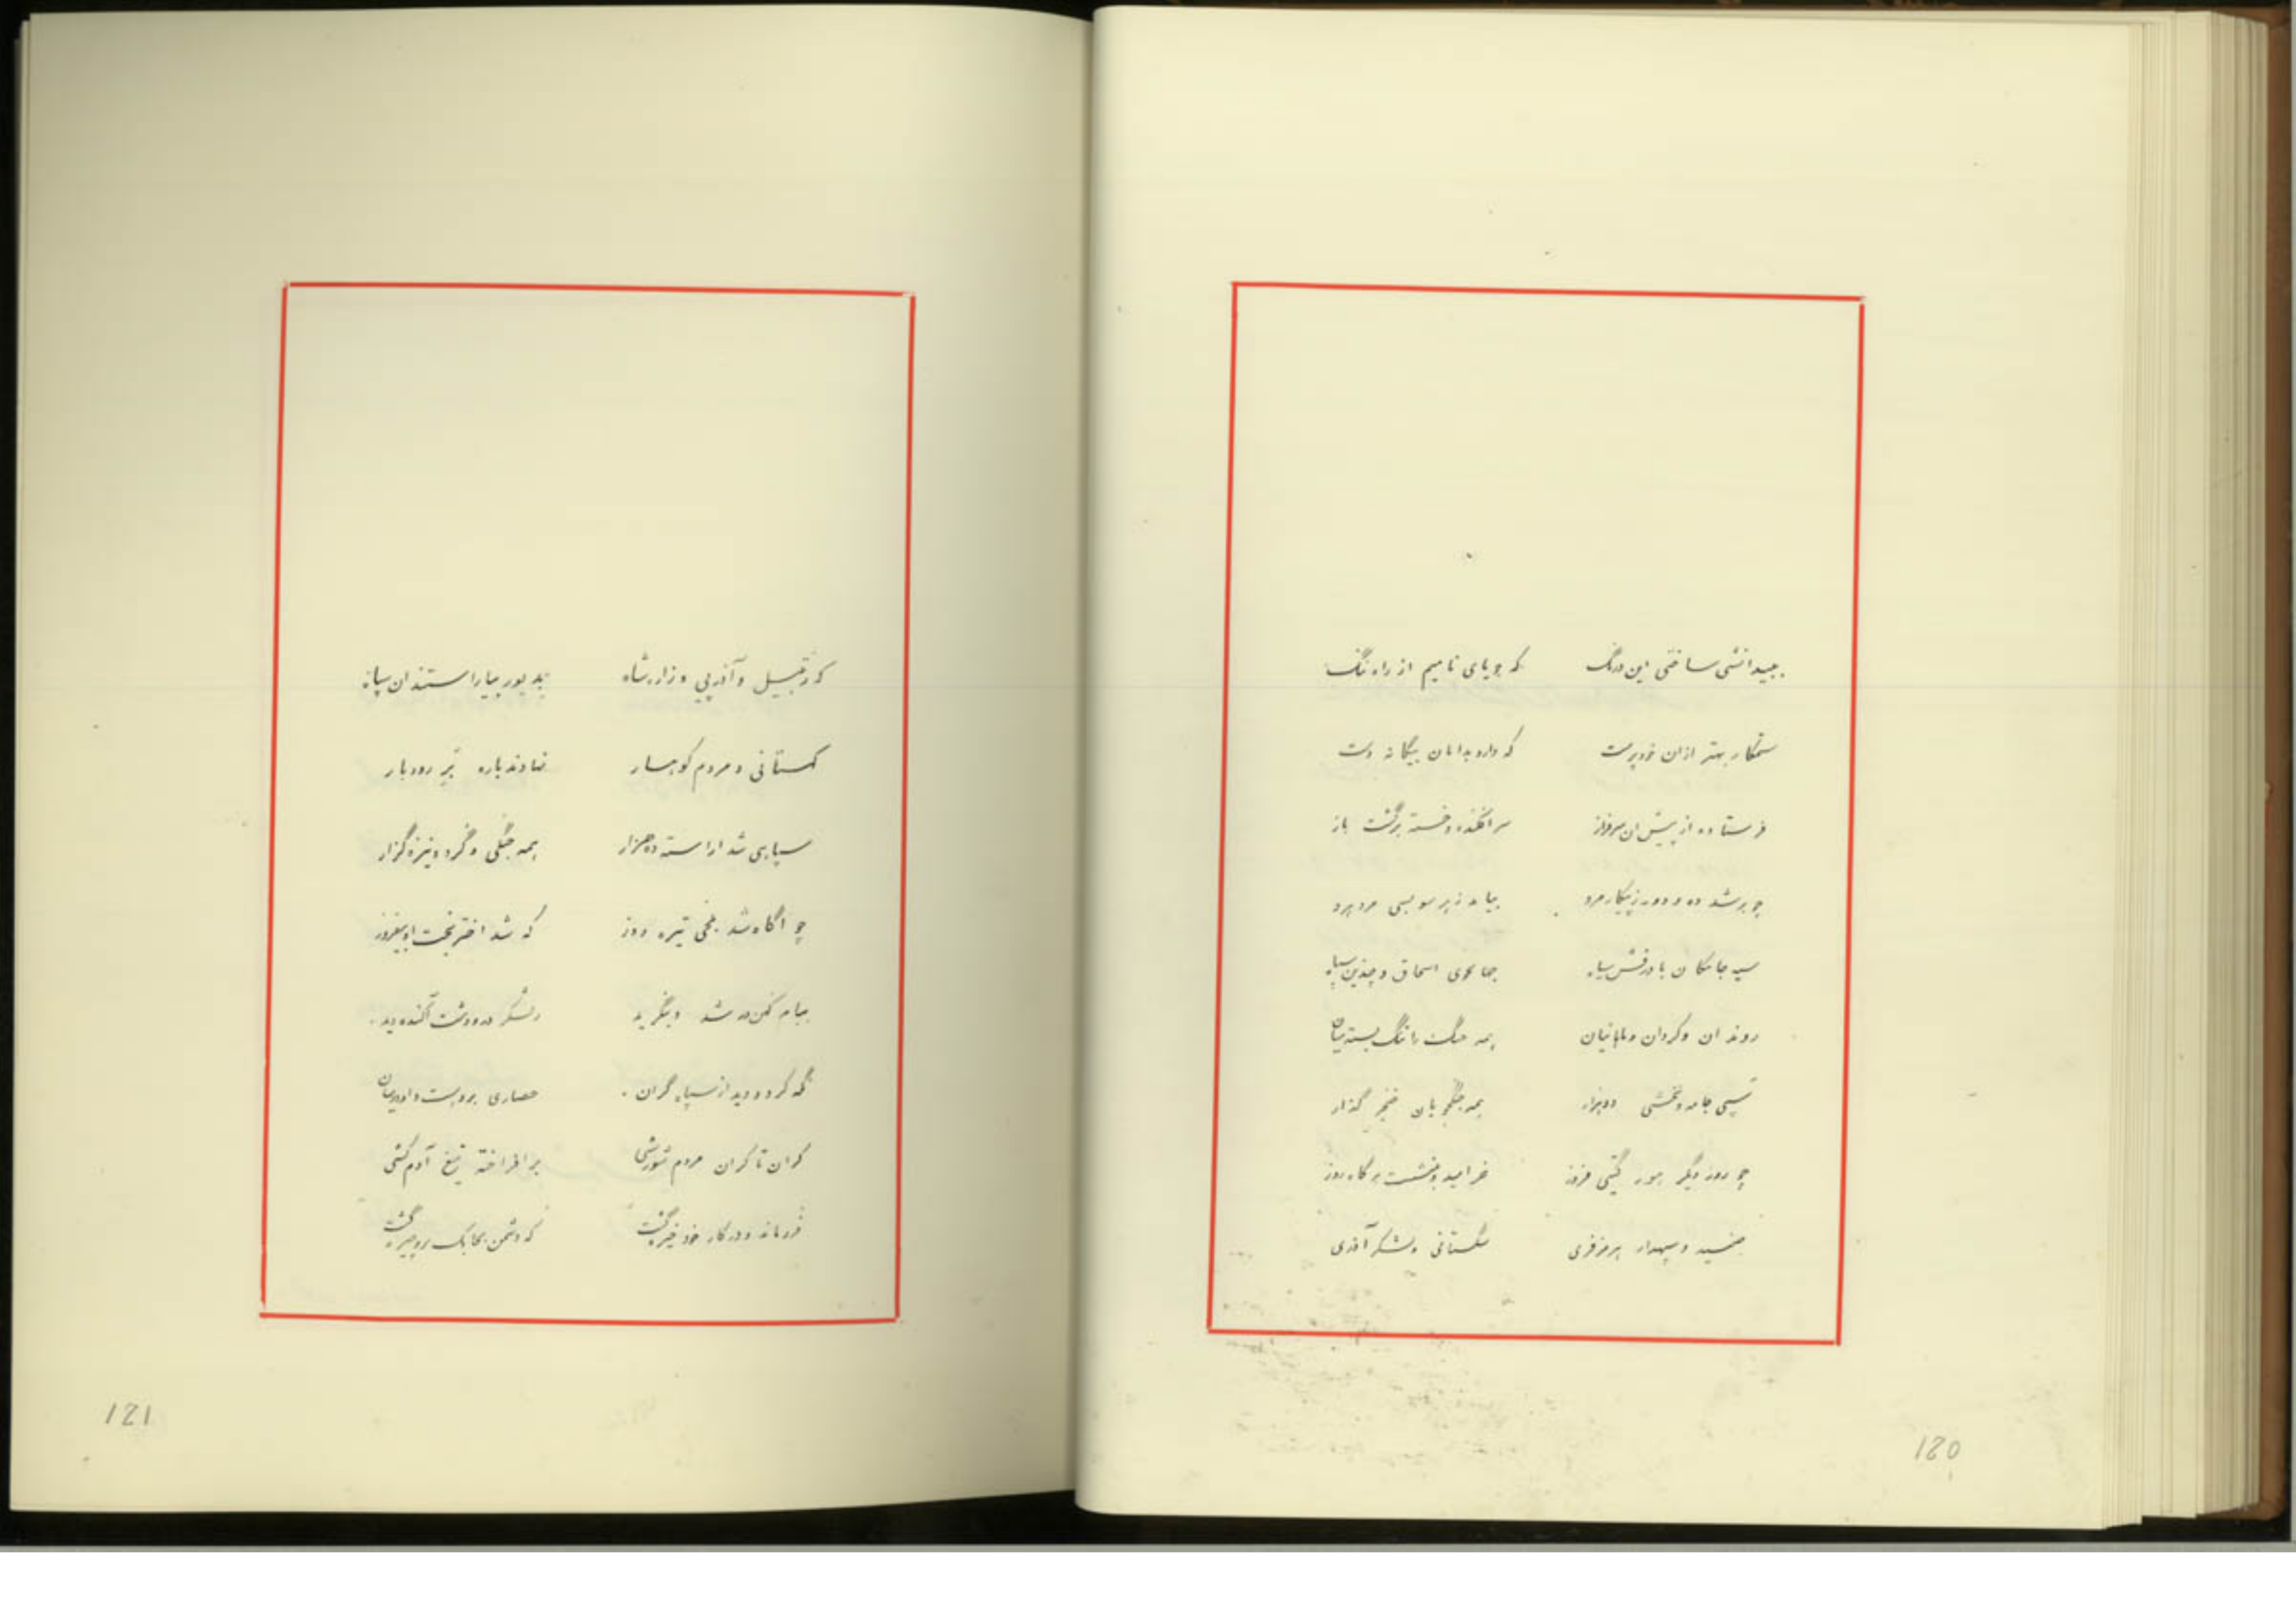 که جویای نامیم از راه ننگ
ستمکار بهتر ازان خودپرست که دارد بدامان بیگانه دست
فرستاده از پیش ان سرفراز سرافکنده و خسته برگشت باز
چو بر شد ده و دو ز پیکار مرد بیامد ز هر سو بسی مرد مرد
سیه جامگان با درفش سیاه جهانجوی اسحاق و چندین سپاه
روند ان و کردان و ماهانیان همه جنگ را تنگ بسته میان
جامه و بخشی دوهزار همه جنگجویان خنجر گذار
چو روز دیگر هور گیتی فروز خرامید و بنشست بر گاه روز
و سپهدار هرمزفری و لشکر آذری
120
و آذرپی و زارشاه بیاراستند ان سپاه
کهستانی و مردم کوهسار نهاوند باره رودبار
سپاهی شد اراسته ده هزار همه جنگی و گرد و نیزه گزار
چو اگاه شد تیره روز که شد اختر بخت او
ببام کهن در شد و بنگرید ز لشکر در و دشت آکنده دید
نگه کرد و دید از سپاه گران حصاری بر و بست و او در میان
کران تا کران مردم شورشی بر افراخته تیغ آدم کشی
فرو ماند و در کار خود خیره گشت که دشمن بچابک برو چیره گشت
121